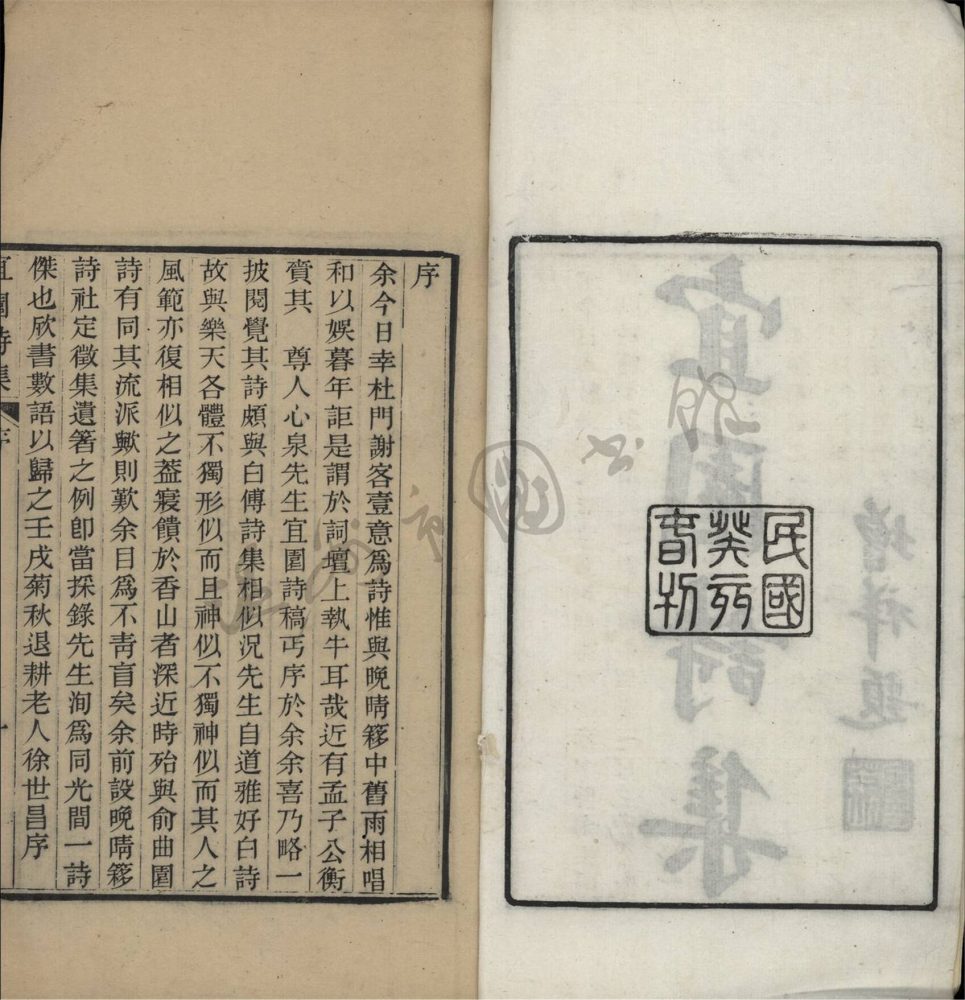 民國
癸亥
春刊
序
余今日幸杜門謝客壹意爲詩惟與晚晴簃中舊雨相唱
和以娛暮年詎是謂於詞壇上執牛耳哉近有孟子公衡
賫其　尊人心泉先生宜園詩稿丐序於余余喜乃略一
披閱覺其詩頗與白傅詩集相似況先生自道雅好白詩
故與樂天各體不獨形似而且神似不獨神似而其人之
風範亦復相似之葢寢饋於香山者深近時殆與俞曲園
詩有同其流派歟則歎余目爲不靑盲矣余前設晚晴簃
詩社定徵集遺箸之例卽當採錄先生洵爲同光間一詩
傑也欣書數語以歸之壬戌菊秋退耕老人徐世昌序
宜園詩集　序　一